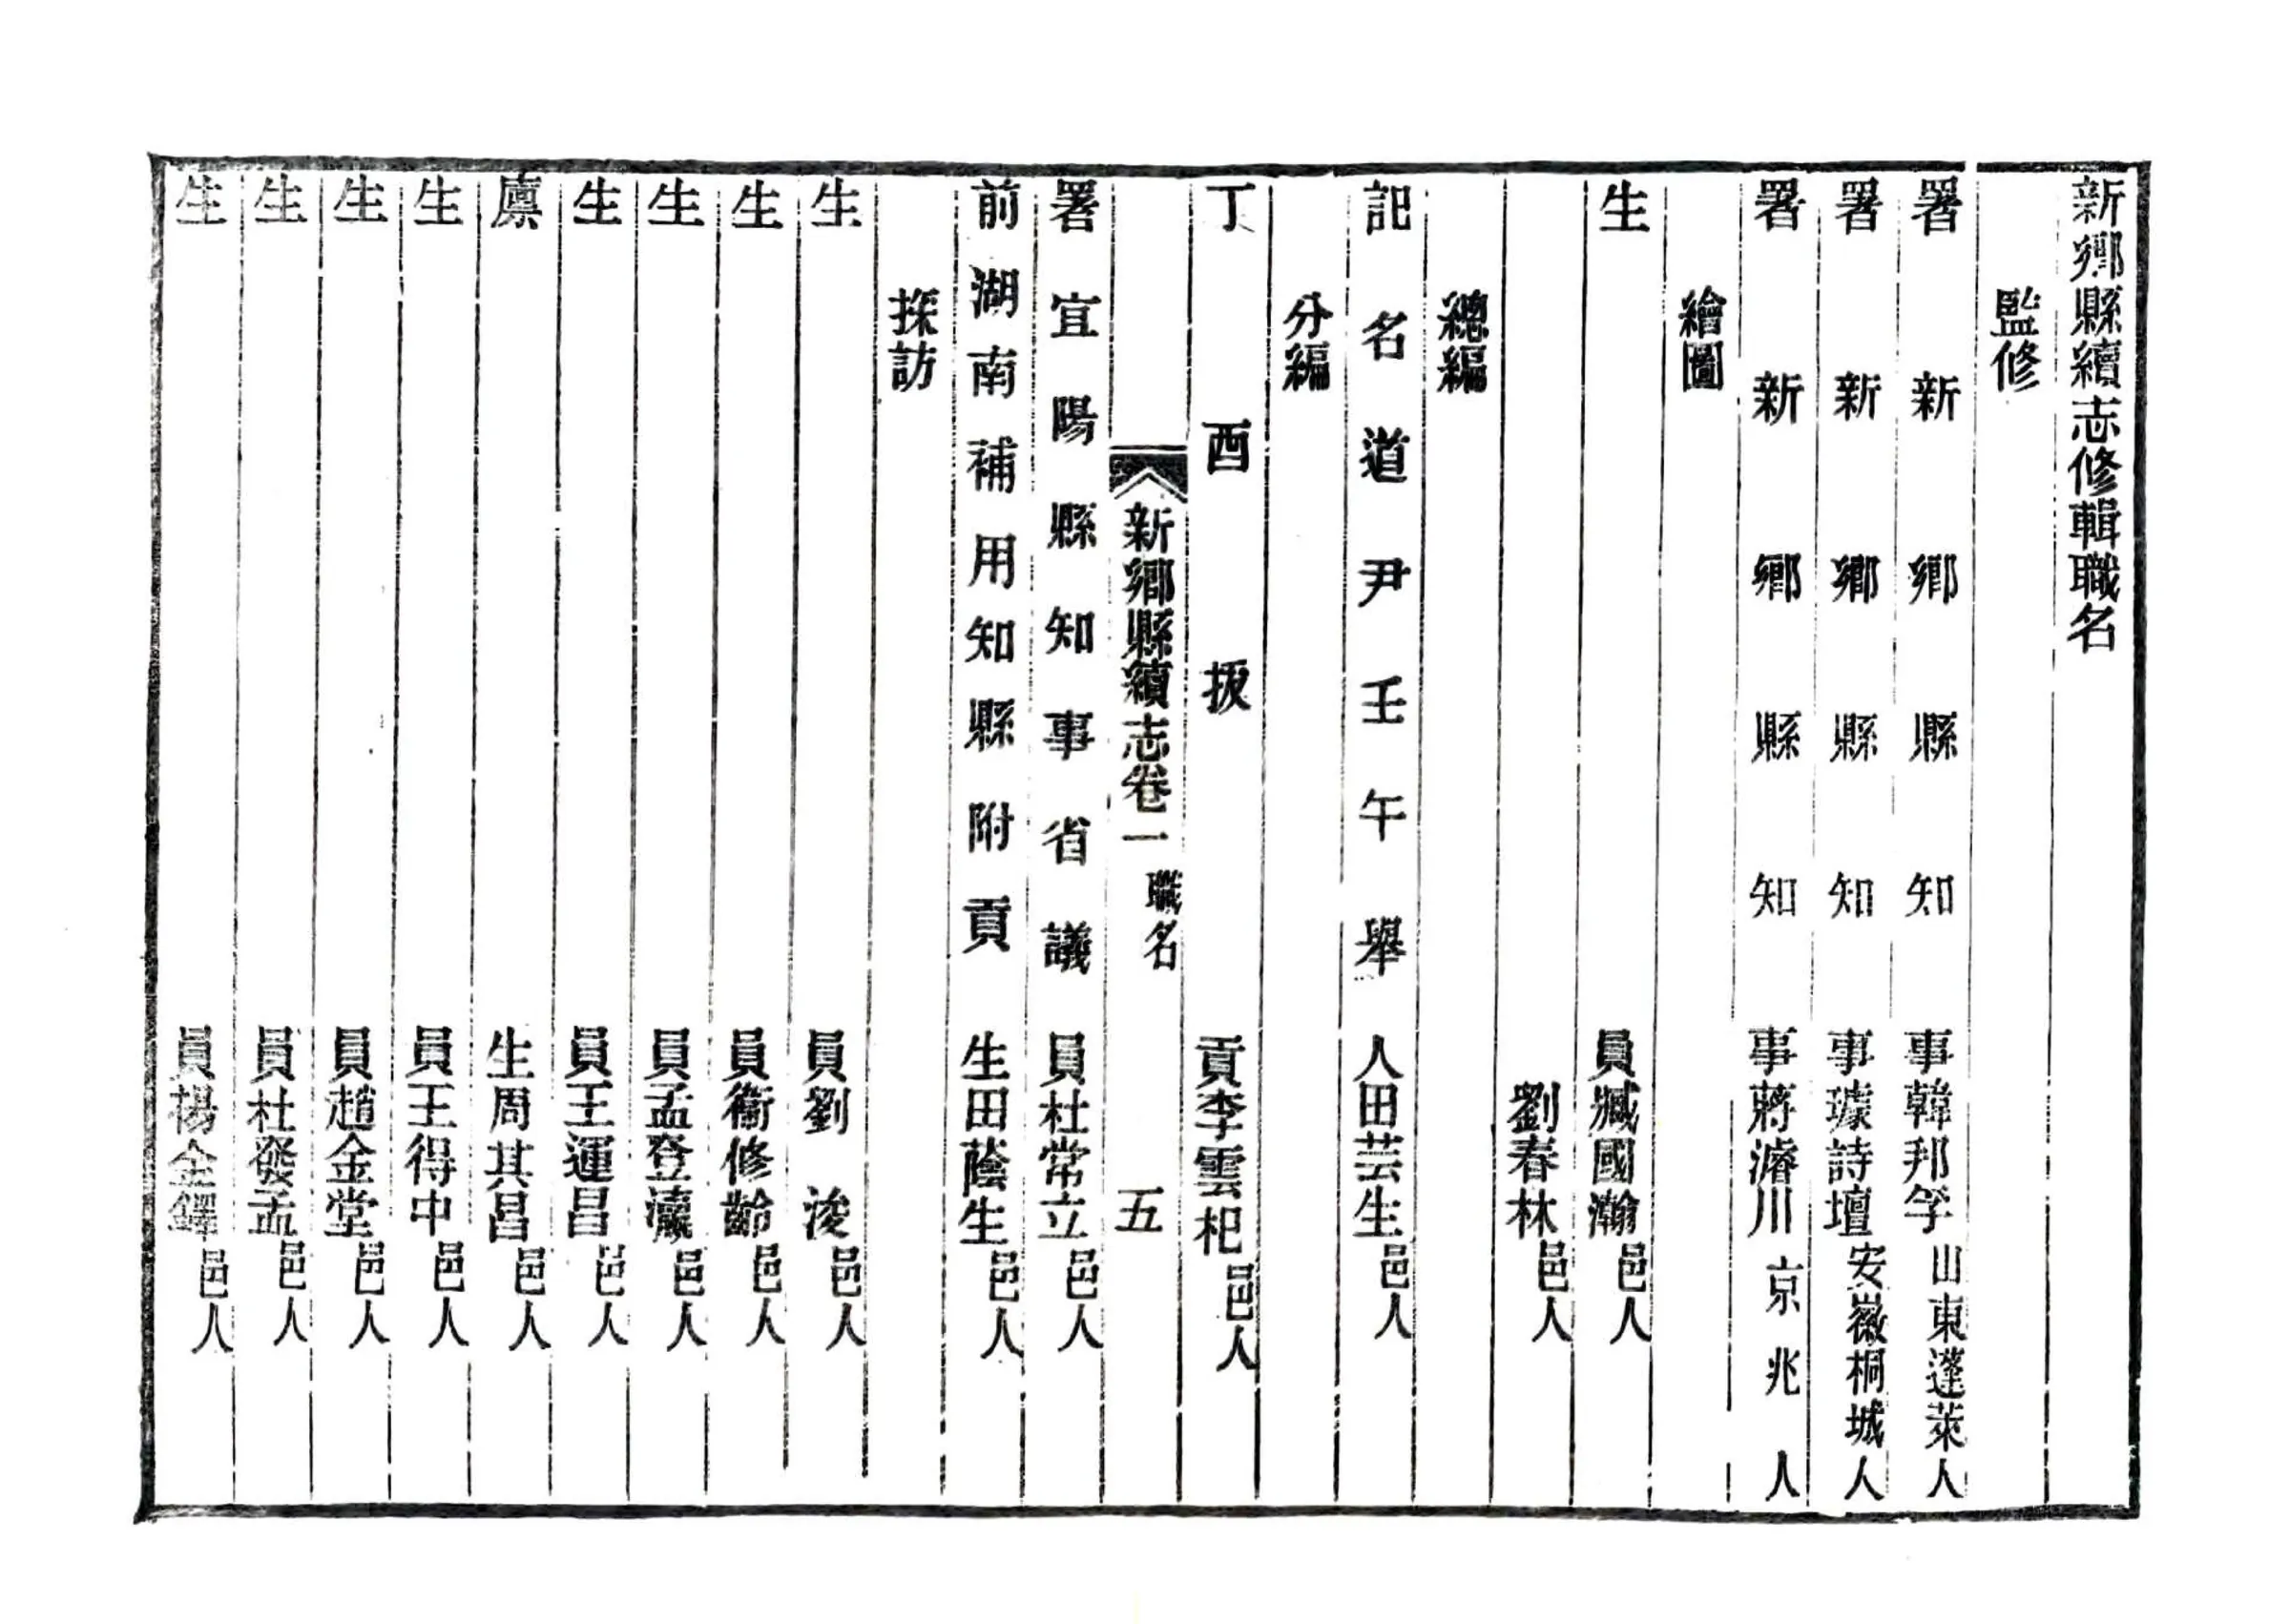 新鄉縣續志修輯職名
監修
署新鄉縣知事韓邦孚山東蓬萊人
署新鄉縣知事璩詩壇安徽桐城人
署新鄉縣知事蔣濬川京兆人
繪圖
生員臧國瀚邑人
劉春林邑人
總編
記名道尹壬午舉人田芸生邑人
分編
丁酉拔貢李雲杞邑人
新鄉縣續志卷一 職名 五
署宜陽縣知事省議員杜常立邑人
前湖南補用知縣附貢生田蔭生邑人
採訪
生員劉浚邑人
生員衞修齡邑人
生員孟登瀛邑人
生員王運昌邑人
廪生周其昌邑人
生員王得中邑人
生員趙金堂邑人
生員杜發孟邑人
生員楊金鐸邑人